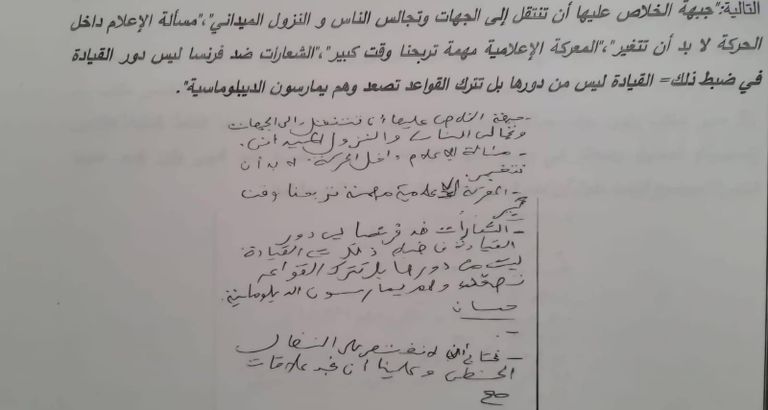 التالية:"جبهة الخلاص عليها أن تنتقل إلى الجهات وتجالس الناس و النزول الميداني"،"مسألة الإعلام داخل
الحركة لا بد أن تتغير"،"المعركة الإعلامية مهمة تربحنا وقت كبير"،"الشعارات ضد فرنسا ليس دور القيادة
في ضبط ذلك= القيادة ليس من دورها بل تترك القواعد تصعد وهم يمارسون الديبلوماسية".
- جبهة الخلاص عليها أن تنتقل إلى الجهات
وتجالس الناس والنزول الميداني.
- مسألة الإعلام داخل الحركة لا بد أن
تتغير.
- المعركة الإعلامية مهمة تربحنا وقت
كبير
- الشعارات ضد فرنسا ليس دور
القيادة في ضبط ذلك = القيادة
ليس من دورها بل تترك القواعد
تصعد وهم يمارسون الديبلوماسية.
حسان
-
- نحتاج أن لا نقتصر على النضال
وعلينا أن نجد علاقات
مع